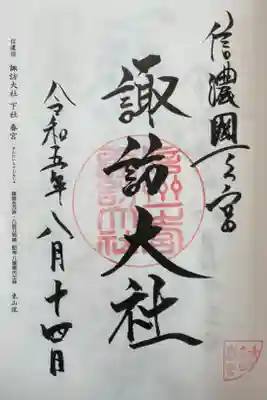 信濃國一之宮
諏訪大社
令和五年八月十四日
信濃國 諏訪大社 下社 春宮